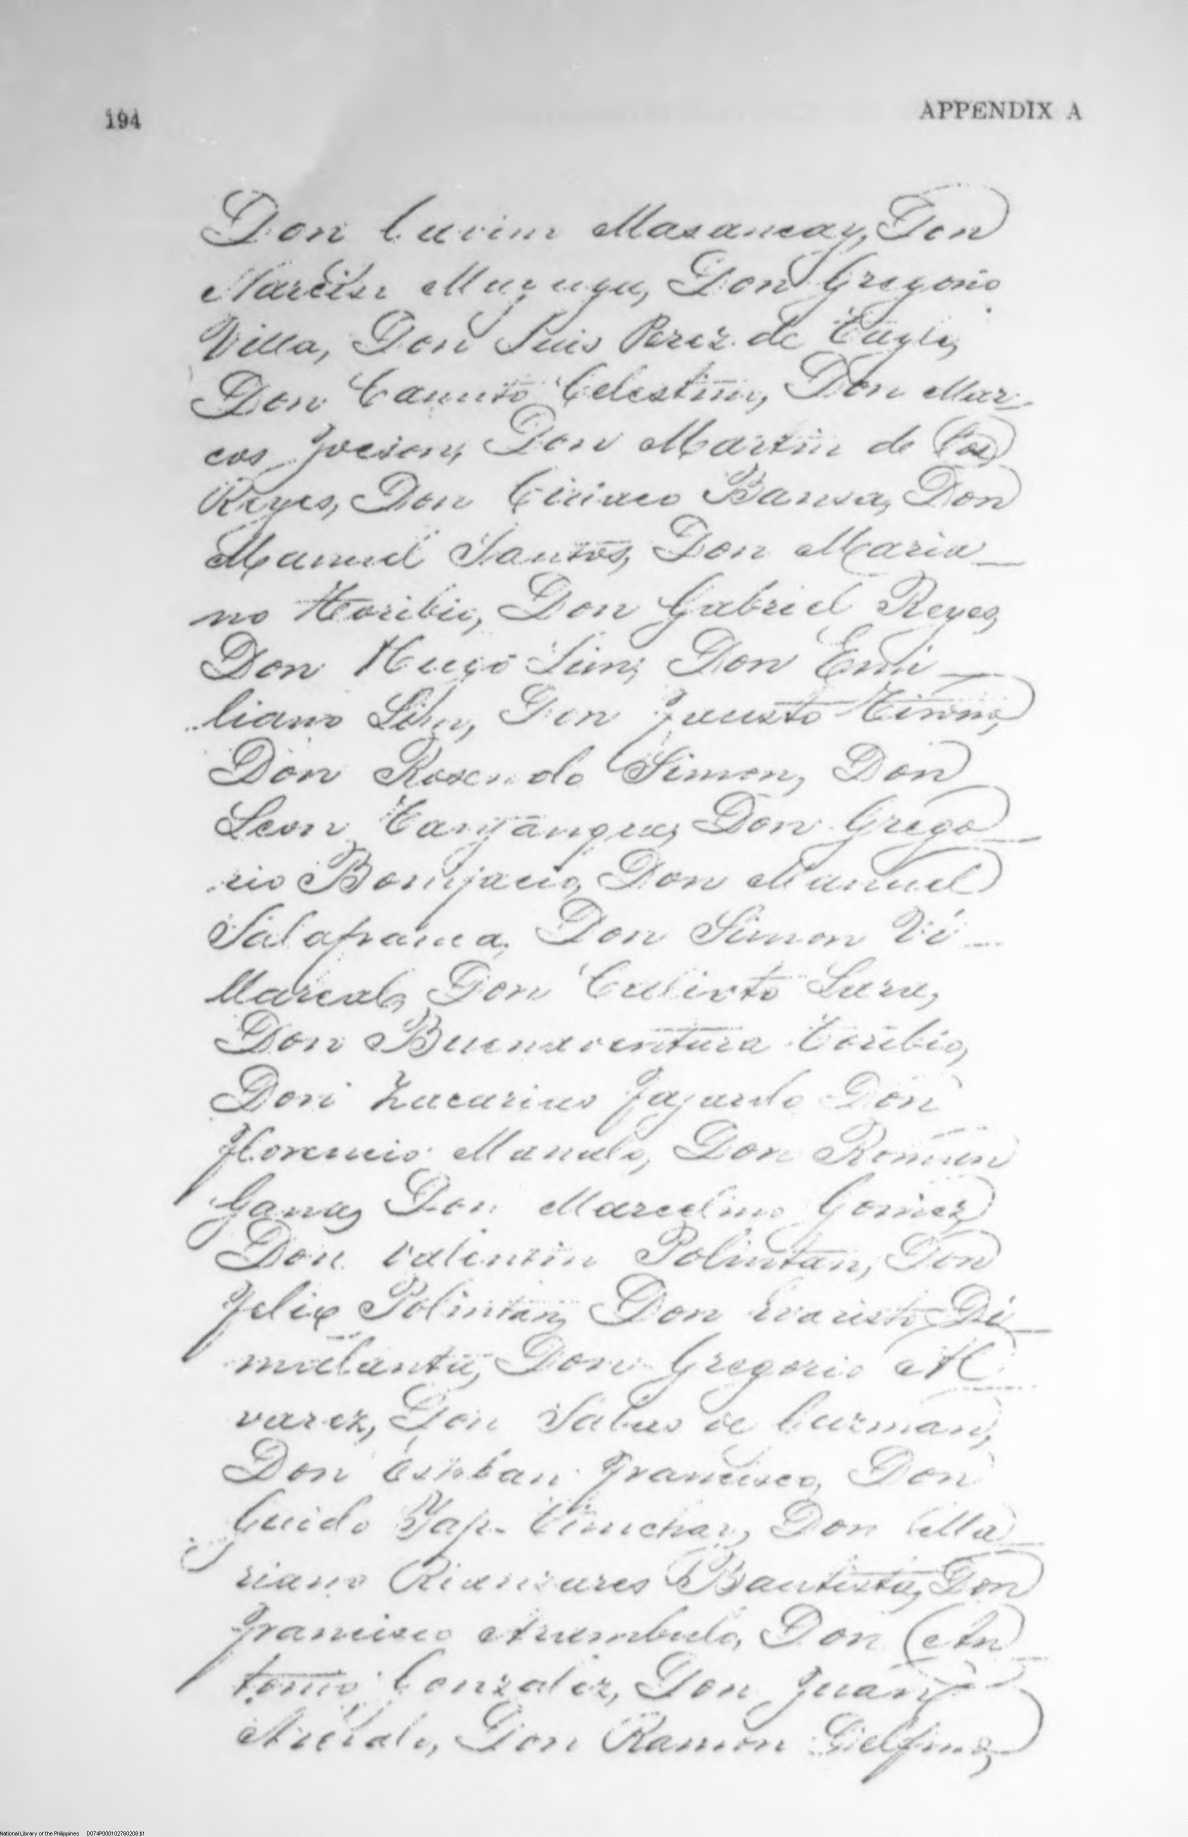 194
APPENDIX A
Don Masancay, Don
Narciso Mayuga, Don Gregorio
Villa, Don Luis Perez de Tagle,
Don Canuto Celestino, Don Mar-
cos Jocson, Don Martin de los
Reyes, Don Ciriaco Bausa, Don
Manuel Santos, Don Maria-
no Toribio, Don Gabriel Reyes,
Don Hugo Lim, Don Emi-
liano Lim, Don Fausto Tirona,
Don Rosendo Simon, Don
Leon Tanjanque, Don Grego-
rio Bonifacio, Don Manuel
Salafranca, Don Simon Vi-
Marcal, Don Calixto Lara,
Don Buenaventura Toribio,
Don Zacarias Fajardo Don
Florencio Manalo, Don Roman
Gana, Don Marcelino Gomez,
Don Valentin Polintan, Don
Felix Polintan, Don Evaristo Di-
malanta, Don Gregorio Al-
varez, Don Sabas de Guzman,
Don Esteban Francisco, Don
Guido Yap-Tinchay, Don Ma-
riano Rianzares Bautista, Don
Francisco Arambulo, Don An-
tonio Gonzalez, Don Juan
Arevalo, Don Ramon Delfino,
National Library of the Philippines